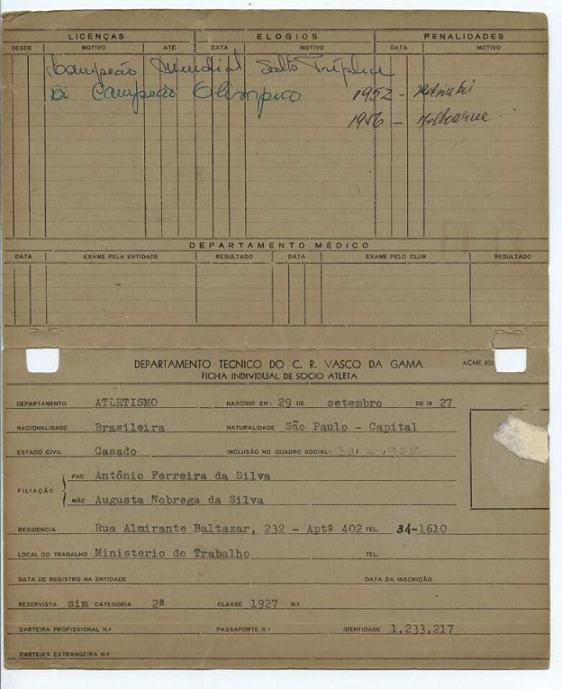 LICENÇAS ELOGIOS PENALIDADES
DESDE MOTIVO ATÉ DATA MOTIVO DATA MOTIVO
Campeão Mundial Salto Triplice
Bi Campeão Olimpico 1952 - Helsinki
1956 - Melbourne
DEPARTAMENTO MÉDICO
DATA EXAME PELA ENTIDADE RESULTADO DATA EXAME PELO CLUB RESULTADO
DEPARTAMENTO TECNICO DO C. R. VASCO DA GAMA ACME
FICHA INDIVIDUAL DE SOCIO ATLETA
DEPARTAMENTO ATLETISMO NASCIDO EM: 29 DE setembro DE 19 27
NACIONALIDADE Brasileira NATURALIDADE São Paulo - Capital
ESTADO CIVIL Casado INCLUSÃO NO QUADRO SOCIAL:
FILIAÇÃO
PAE Antônio Ferreira da Silva
MÃE Augusta Nobrega da Silva
RESIDENCIA Rua Almirante Baltazar, 232 - Aptº 402 TEL. 34-1610
LOCAL DO TRABALHO Ministerio do Trabalho TEL.
DATA DE REGISTRO NA ENTIDADE DATA DA INSCRIÇÃO
RESERVISTA sim CATEGORIA 2ª CLASSE 1927 N.º
CARTEIRA PROFISSIONAL N.º PASSAPORTE N.º IDENTIDADE 1.233.217
CARTEIRA EXTRANGEIRA N.º